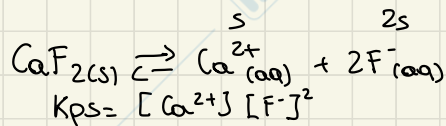 s 2s
CaF₂(s) ⇌ Ca²⁺(aq) + 2F⁻(aq)
Kps= [Ca²⁺] [F⁻]²